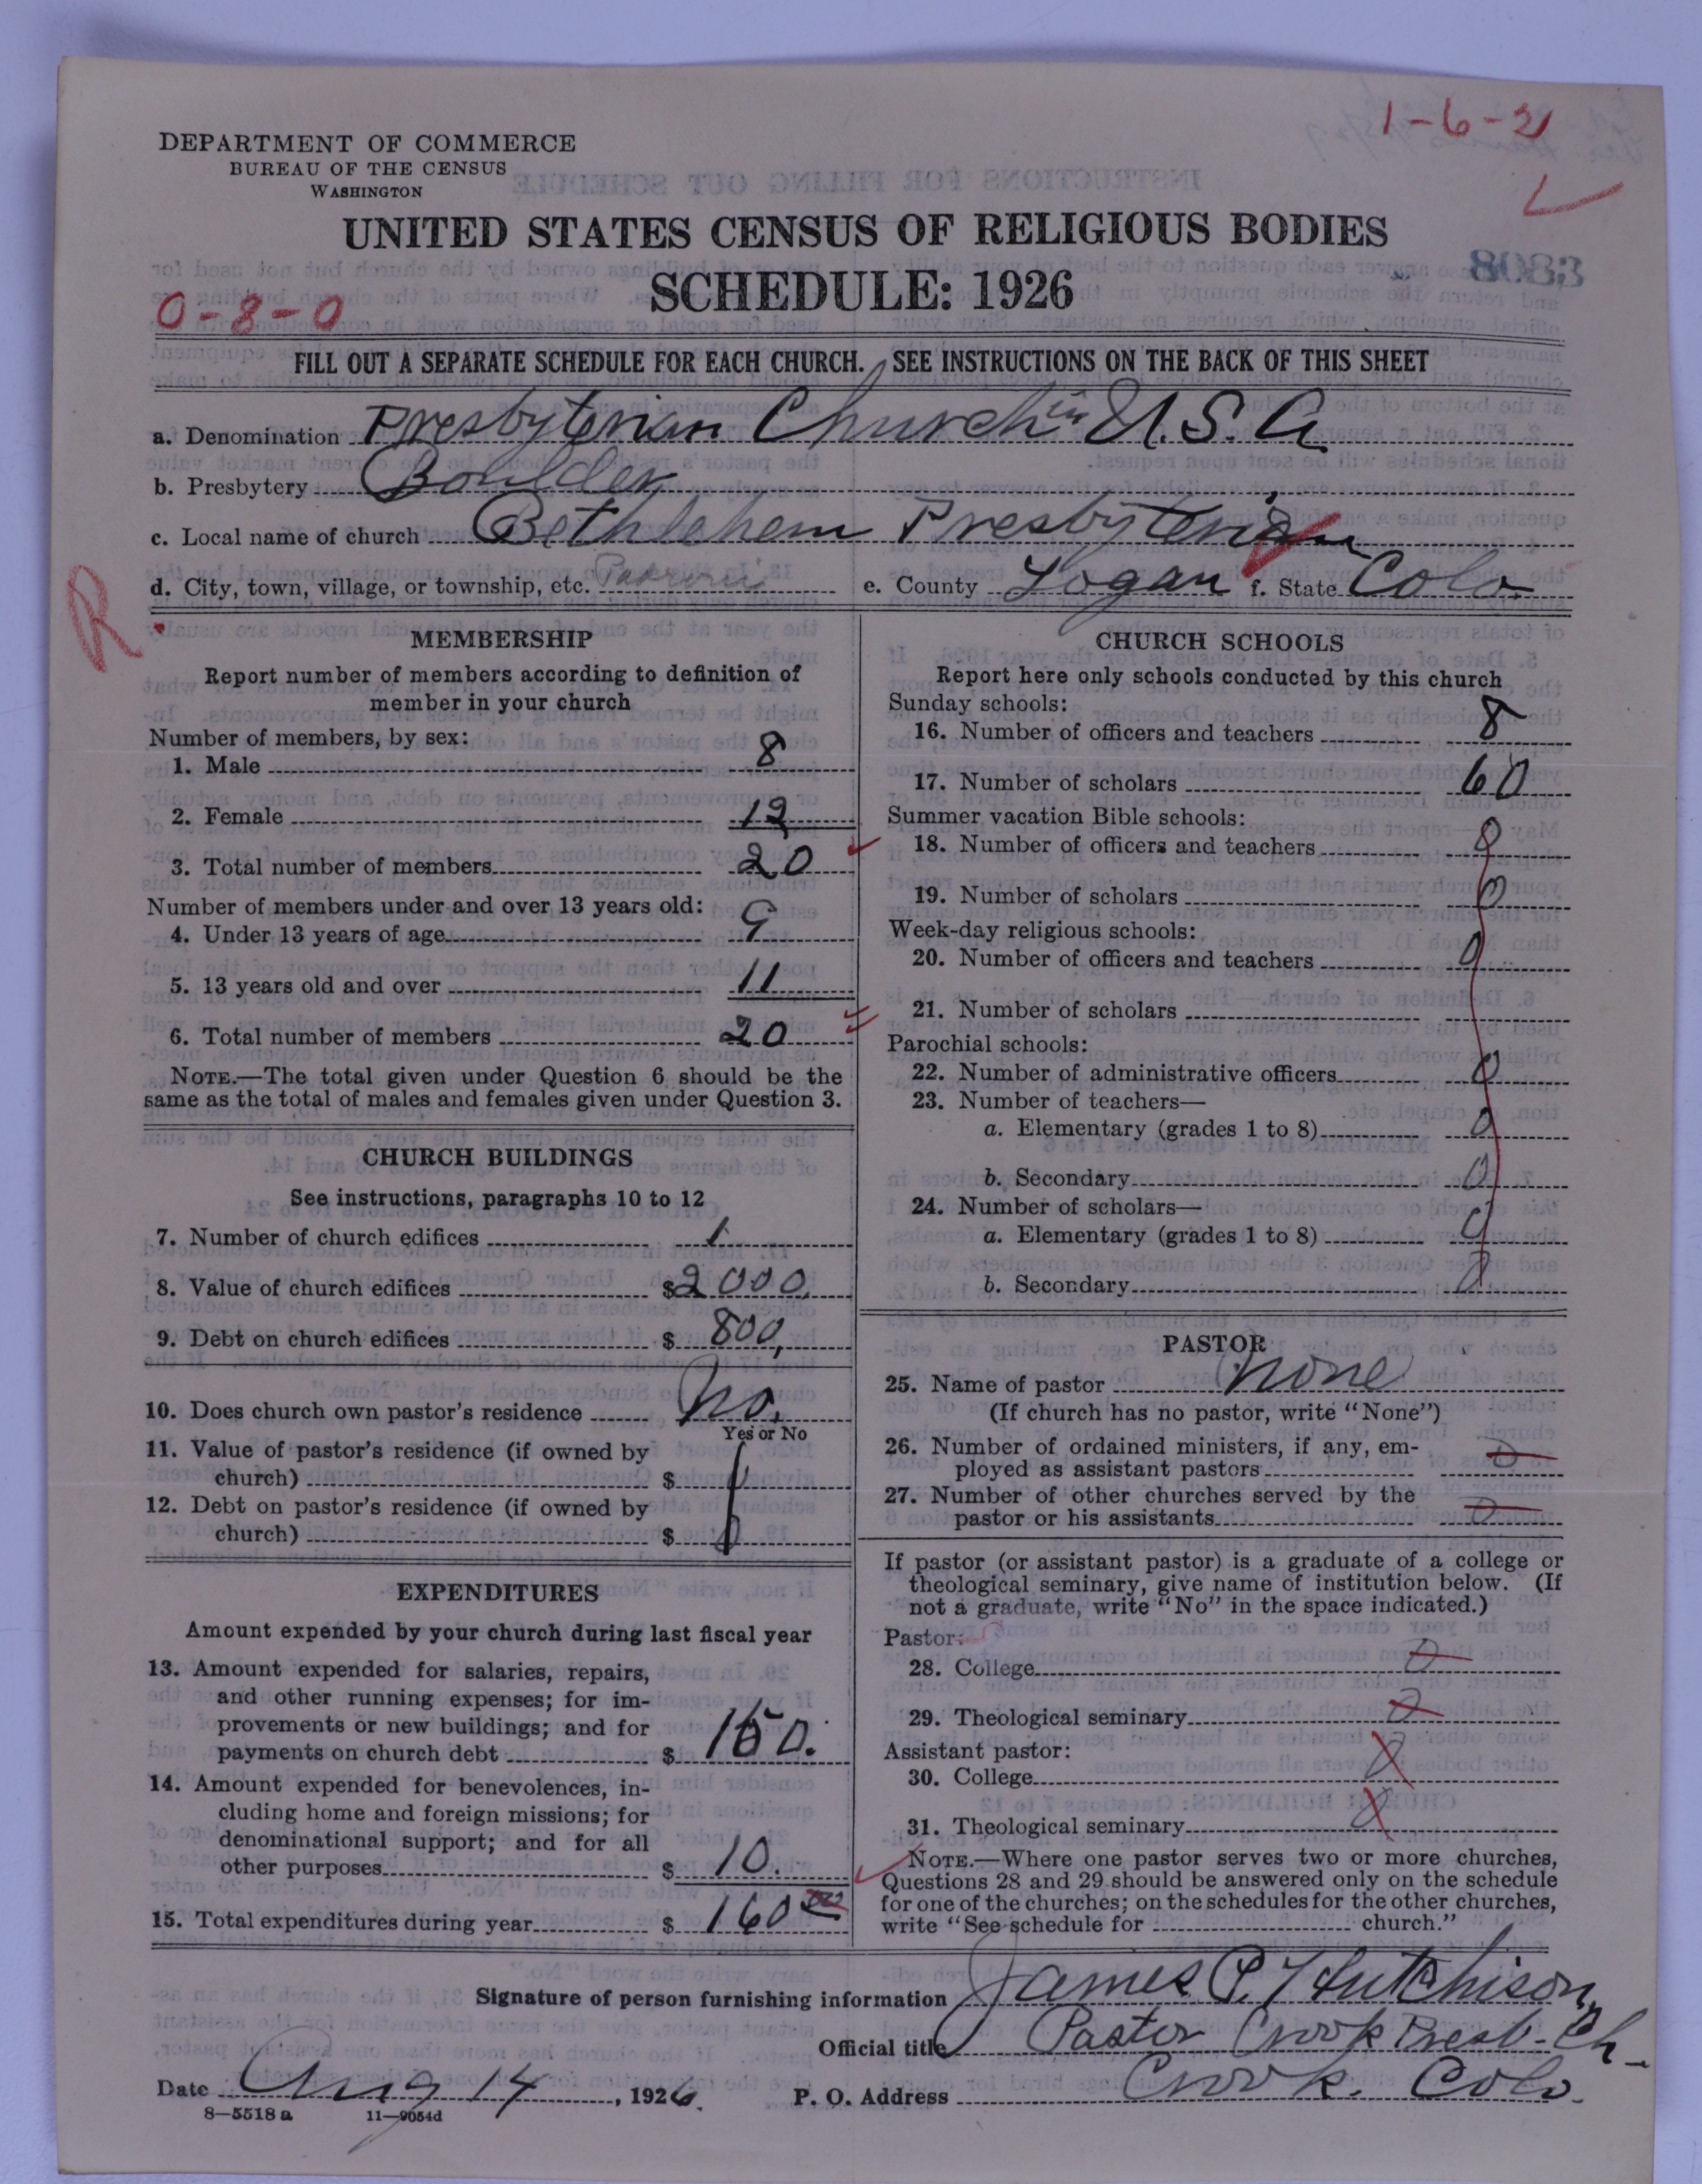 1-6-21
DEPARTMENT OF COMMERCE
BUREAU OF THE CENSUS
WASHINGTON
UNITED STATES CENSUS OF RELIGIOUS BODIES
SCHEDULE: 1926
8083
0-8-0
FILL OUT A SEPARATE SCHEDULE FOR EACH CHURCH. SEE INSTRUCTIONS ON THE BACK OF THIS SHEET
a. Denomination Presbyterian Church in U.S.A
b. Presbytery Boulder
c. Local name of church Bethlehem Presbyterian
d. City, town, village, or township, etc. Padroni e. County Logan f. State Colo.
R
MEMBERSHIP
Report number of members according to definition of
member in your church
Number of members, by sex:
1. Male 8
2. Female 12
3. Total number of members 20
Number of members under and over 13 years old:
4. Under 13 years of age 9
5. 13 years old and over 11
6. Total number of members 20
NOTE.—The total given under Question 6 should be the
same as the total of males and females given under Question 3.
CHURCH BUILDINGS
See instructions, paragraphs 10 to 12
7. Number of church edifices 1
8. Value of church edifices $2000.
9. Debt on church edifices $ 800,
10. Does church own pastor's residence No.
Yes or No
11. Value of pastor's residence (if owned by
church) $
12. Debt on pastor's residence (if owned by
church) $ 0
EXPENDITURES
Amount expended by your church during last fiscal year
13. Amount expended for salaries, repairs,
and other running expenses; for im-
provements or new buildings; and for
payments on church debt $ 150.
14. Amount expended for benevolences, in-
cluding home and foreign missions; for
denominational support; and for all
other purposes $ 10.
15. Total expenditures during year $ 160 00
CHURCH SCHOOLS
Report here only schools conducted by this church
Sunday schools:
16. Number of officers and teachers 8
17. Number of scholars 60
Summer vacation Bible schools:
18. Number of officers and teachers 0
19. Number of scholars 0
Week-day religious schools:
20. Number of officers and teachers 0
21. Number of scholars
Parochial schools:
22. Number of administrative officers 0
23. Number of teachers—
a. Elementary (grades 1 to 8) 0
b. Secondary 0
24. Number of scholars—
a. Elementary (grades 1 to 8) 0
b. Secondary 0
PASTOR
25. Name of pastor None
(If church has no pastor, write "None")
26. Number of ordained ministers, if any, em-
ployed as assistant pastors 0
27. Number of other churches served by the
pastor or his assistants 0
If pastor (or assistant pastor) is a graduate of a college or
theological seminary, give name of institution below. (If
not a graduate, write "No" in the space indicated.)
Pastor:
28. College 0
29. Theological seminary 0
Assistant pastor:
30. College 0
31. Theological seminary 0
NOTE.—Where one pastor serves two or more churches,
Questions 28 and 29 should be answered only on the schedule
for one of the churches; on the schedules for the other churches,
write "See schedule for church."
Signature of person furnishing information James P. Hutchison,
Official title Pastor Crook Presb. Ch.
Date Aug 14, 1926. P. O. Address Crook. Colo.
8—5518 a 11—9054d